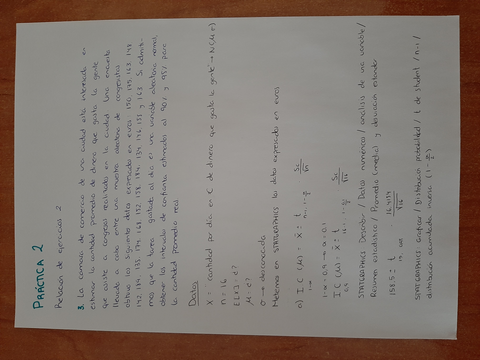 PRÁCTICA 2
Relación de ejercicios 2
3. La cámara de comercio de una ciudad está interesada en
estimar la cantidad promedio de dinero que gasta la gente
que asiste a congresos realizados en la ciudad. Una encuesta
llevada a cabo entre una muestra aleatoria de congresistas
obtuvo los siguientes datos expresados en euros: 150, 175, 163, 148
142, 189, 135, 174, 168, 152, 158, 184, 134, 146, 155 y 163. Si admiti-
mos que la gasto al día es una variable aleatoria normal,
obtener los intervalos de confianza estimados al 90% y 95% para
la cantidad promedio real
Datos
X = "cantidad por día en € de dinero que gasta la gente" → N(μ, σ)
n = 16
μ = ?
σ → desconocida
Metemos en STATGRAPHICS los datos expresados en euros
a) I.C. (μ) = x̄ ±
1-α = 0.9 → α = 0.1
I.C. (μ) = x̄ ±
STATGRAPHICS: Describir / Datos numéricos / análisis de una variable /
Resumen estadístico / Promedio (media) y desviación estándar
STATGRAPHICS: Graficar / Distribución probabilidad / t de student / n-1 /
distribución acumulada inversa